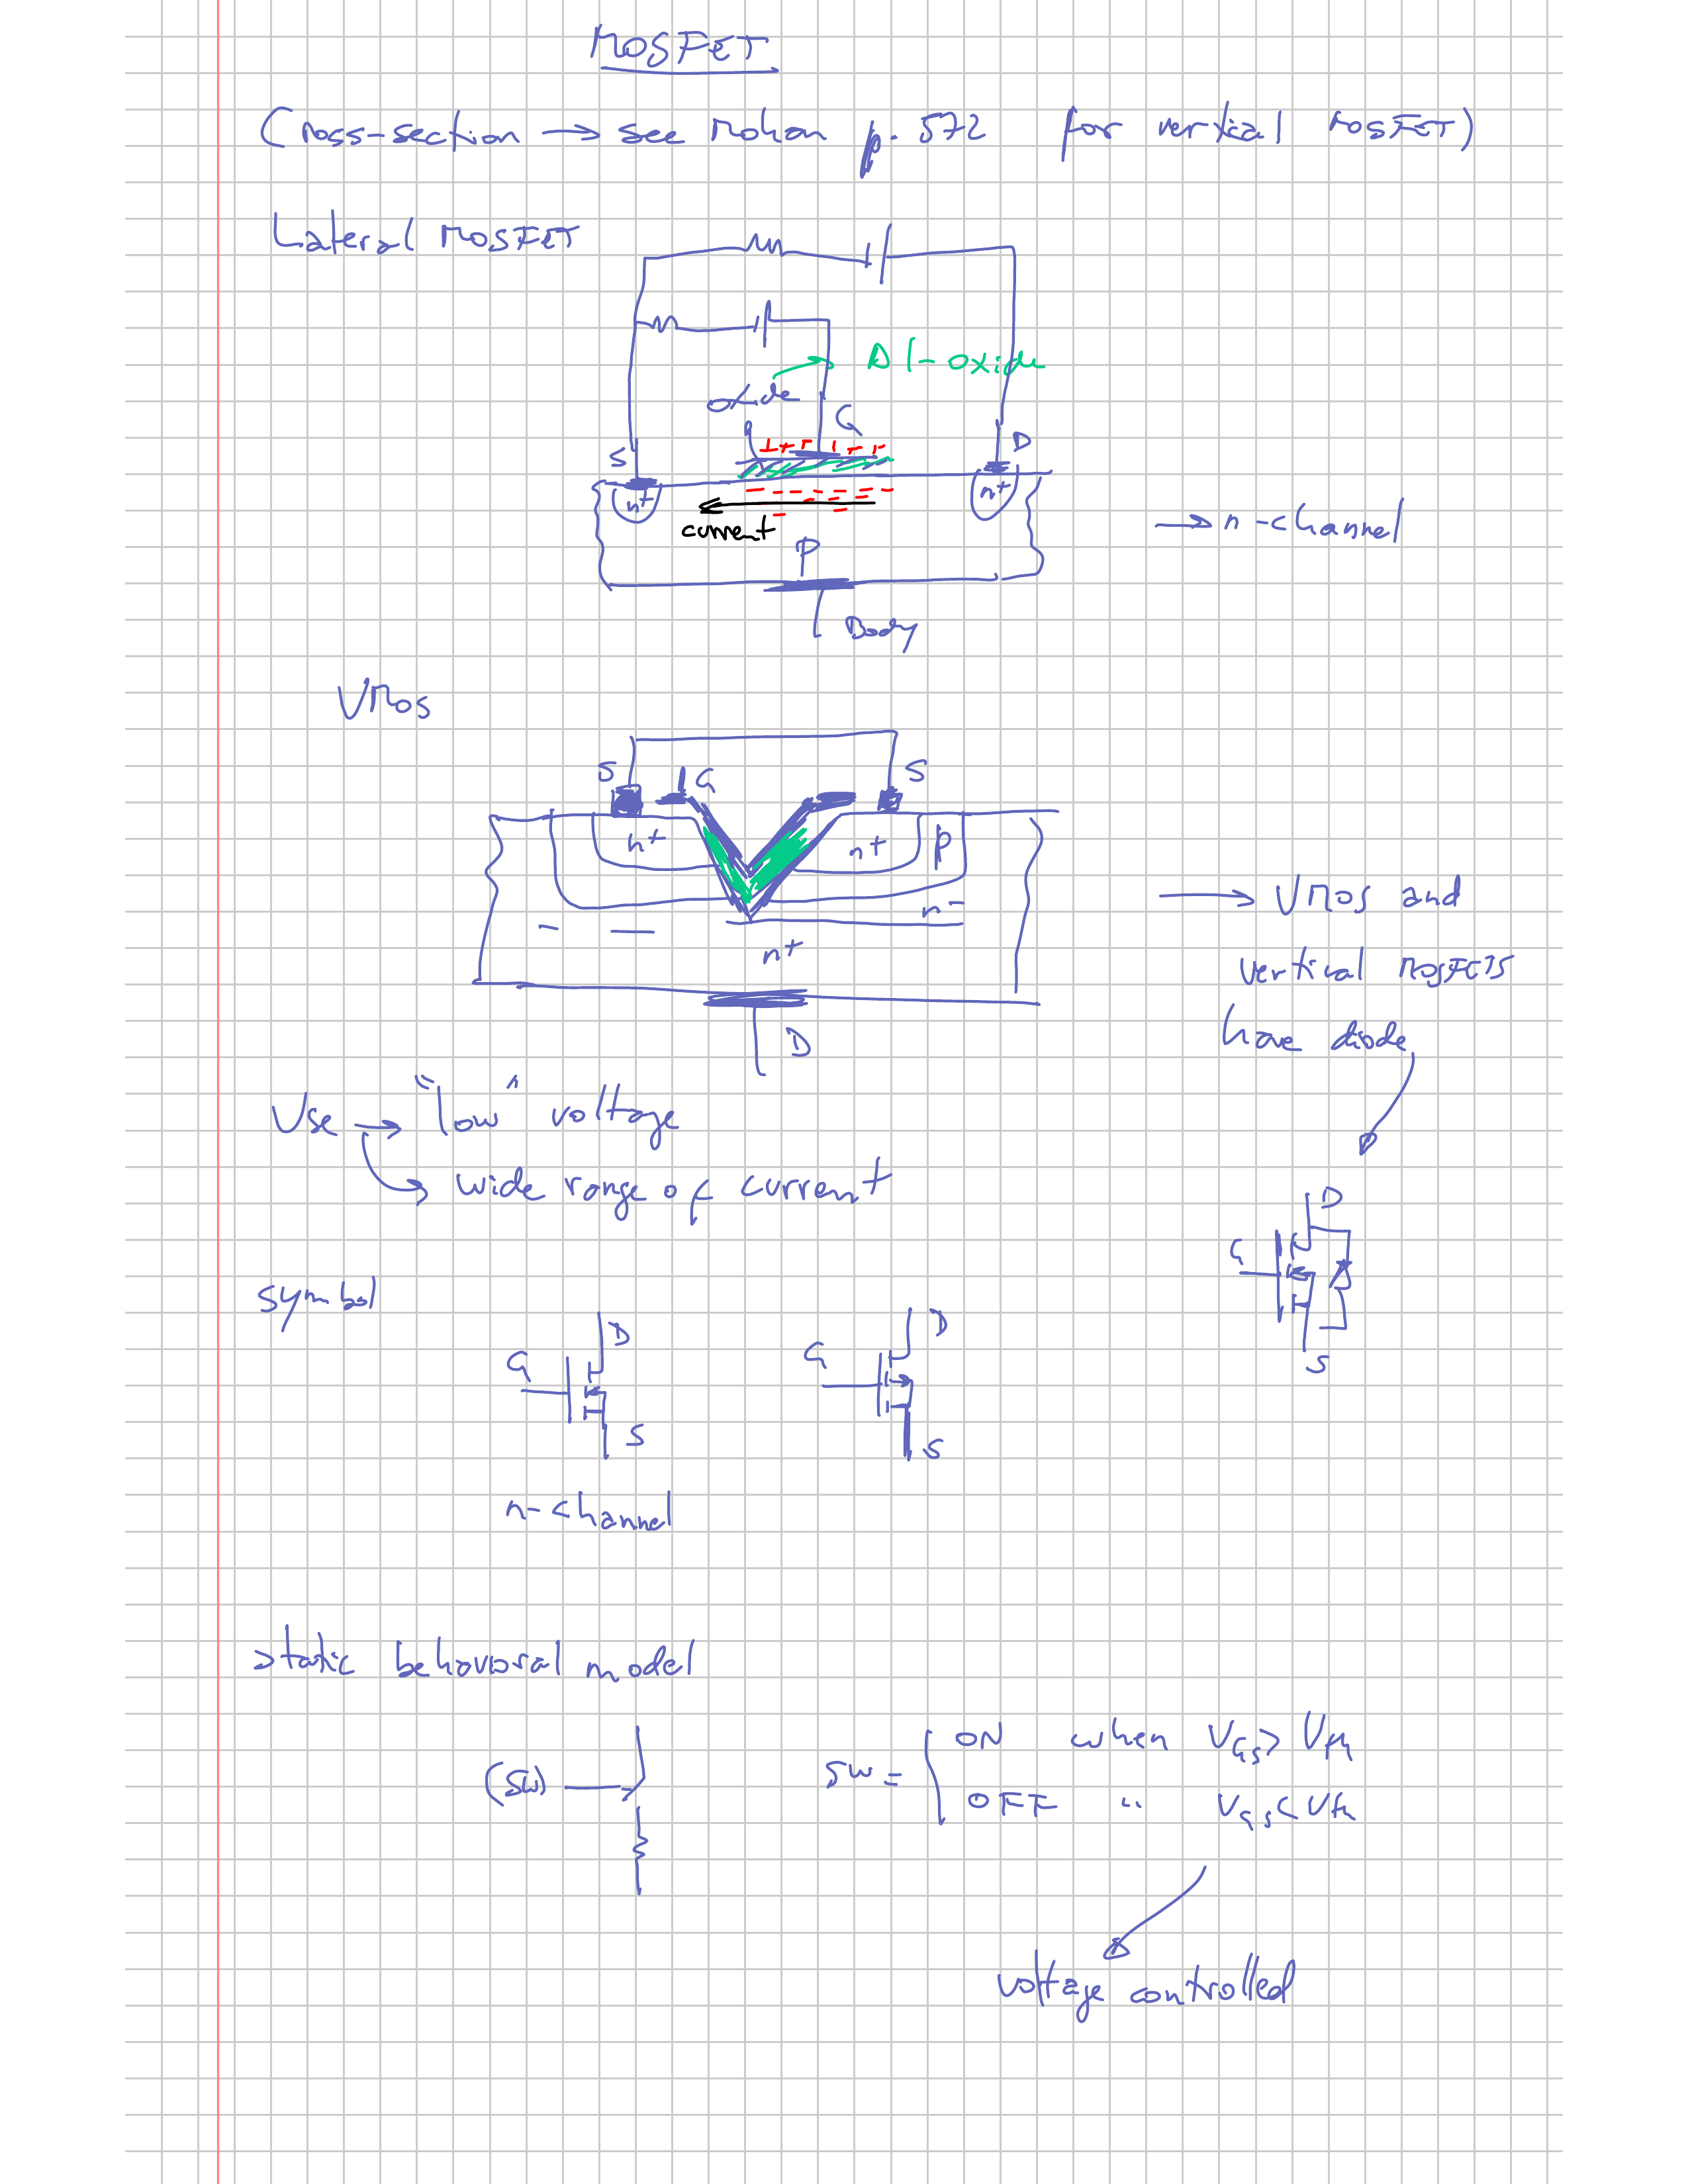 MOSFET
(Cross-section → see Mohan p. 572 for vertical MOSFET)
Lateral MOSFET
Al-oxide
oxide
G
S
D
n+
n+
current
→ n-channel
P
Body
VMOS
S
G
S
n+
n+
p
n-
n+
D
→ VMOS and
vertical MOSFETS
have diode
Use → "low" voltage
→ wide range of current
D
G
S
symbol
D
G
S
D
G
S
n-channel
static behavioral model
(SW)
SW = { ON when VGS > Vth
OFF " VGS < Vth
voltage controlled